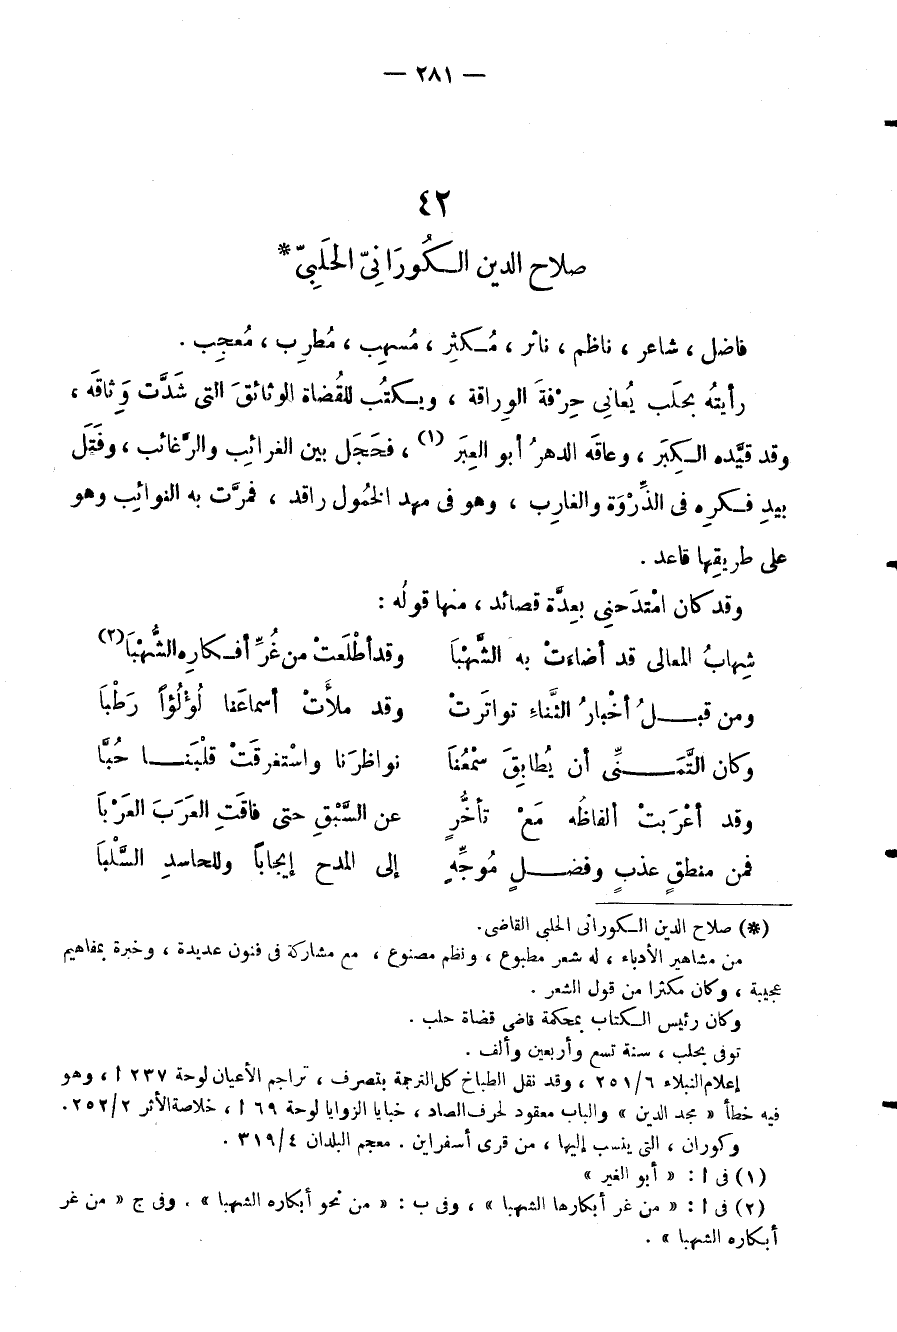 — ٢٨١ —
٤٢
صلاح الدين الكُورَانِىّ الحلَبِىّ *
فاضل ، شاعر ، ناظم ، ناثر ، مُكثِر ، مُسهِب ، مُطرِب ، مُعجِب .
رأيتُه بحلَب يُعانِى حِرْفةَ الوِراقة ، ويكتُب للقُضاة الوثائقَ التى شَدَّت وَثاقَه ،
وقد قيَّده الكِبَر ، وعاقَه الدهرُ أبو العِبَر (١) ، فحَجَل بين الغرائبِ والرَّغائب ، وفَتَل
بيدِ فكرِه فى الذِّرْوَة والغارِب ، وهو فى مهد الخمُول راقد ، فمرَّت به النوائب وهو
على طريقِها قاعد .
وقد كان امْتدَحنِى بعِدَّة قصائد ، منها قولُه :
شِهابُ المعالى قد أضاءتْ به الشَّهْبَا وقد أطْلَعتْ من غُرِّ أفكارِه الشُّهْبَا (٢)
ومن قبلُ أخْبارُ الثَّناءِ تواتَرتْ وقد ملأَتْ أسماعَنا لُؤْلُؤاً رَطْبَا
وكان التَّمَنِّى أن يُطابِقَ سَمْعُنَا نواظرَنا واسْتغرقَتْ قلْبَنا حُبَّا
وقد أعْرَبتْ ألفاظُه مَعْ تأخُّرٍ عن السَّبْقِ حتى فاقَتِ العَرَبَ العَرْبَا
فمن منطقٍ عذبٍ وفضلٍ مُوجِّهٍ إلى المدح إيجاباً وللحاسدِ السَّلْبَا
(*) صلاح الدين الكورانى الحلبى القاضى.
من مشاهير الأدباء ، له شعر مطبوع ، ونظم مصنوع ، مع مشاركة فى فنون عديدة ، وخبرة بمفاهيم
عجيبة ، وكان مكثرا من قول الشعر .
وكان رئيس الكتاب بمحكمة قاضى قضاة حلب .
توفى بحلب ، سنة تسع وأربعين وألف .
إعلام النبلاء ٦/٢٥١ ، وقد نقل الطباخ كل الترجمة بتصرف ، تراجم الأعيان لوحة ٢٣٧ ا ، وهو
فيه خطأ « مجد الدين » والباب معقود لحرف الصاد ، خبايا الزوايا لوحة ٦٩ ا ، خلاصة الأثر ٢/٢٥٢.
وكوران ، التى ينسب إليها ، من قرى أسفراين . معجم البلدان ٤/٣١٩ .
(١) فى ا : « أبو الغير »
(٢) فى ا : « من غر أبكارها الشهبا » ، وفى ب : « من نحو أبكاره الشهبا » . وفى ج « من غر
أبكاره الشهبا » .